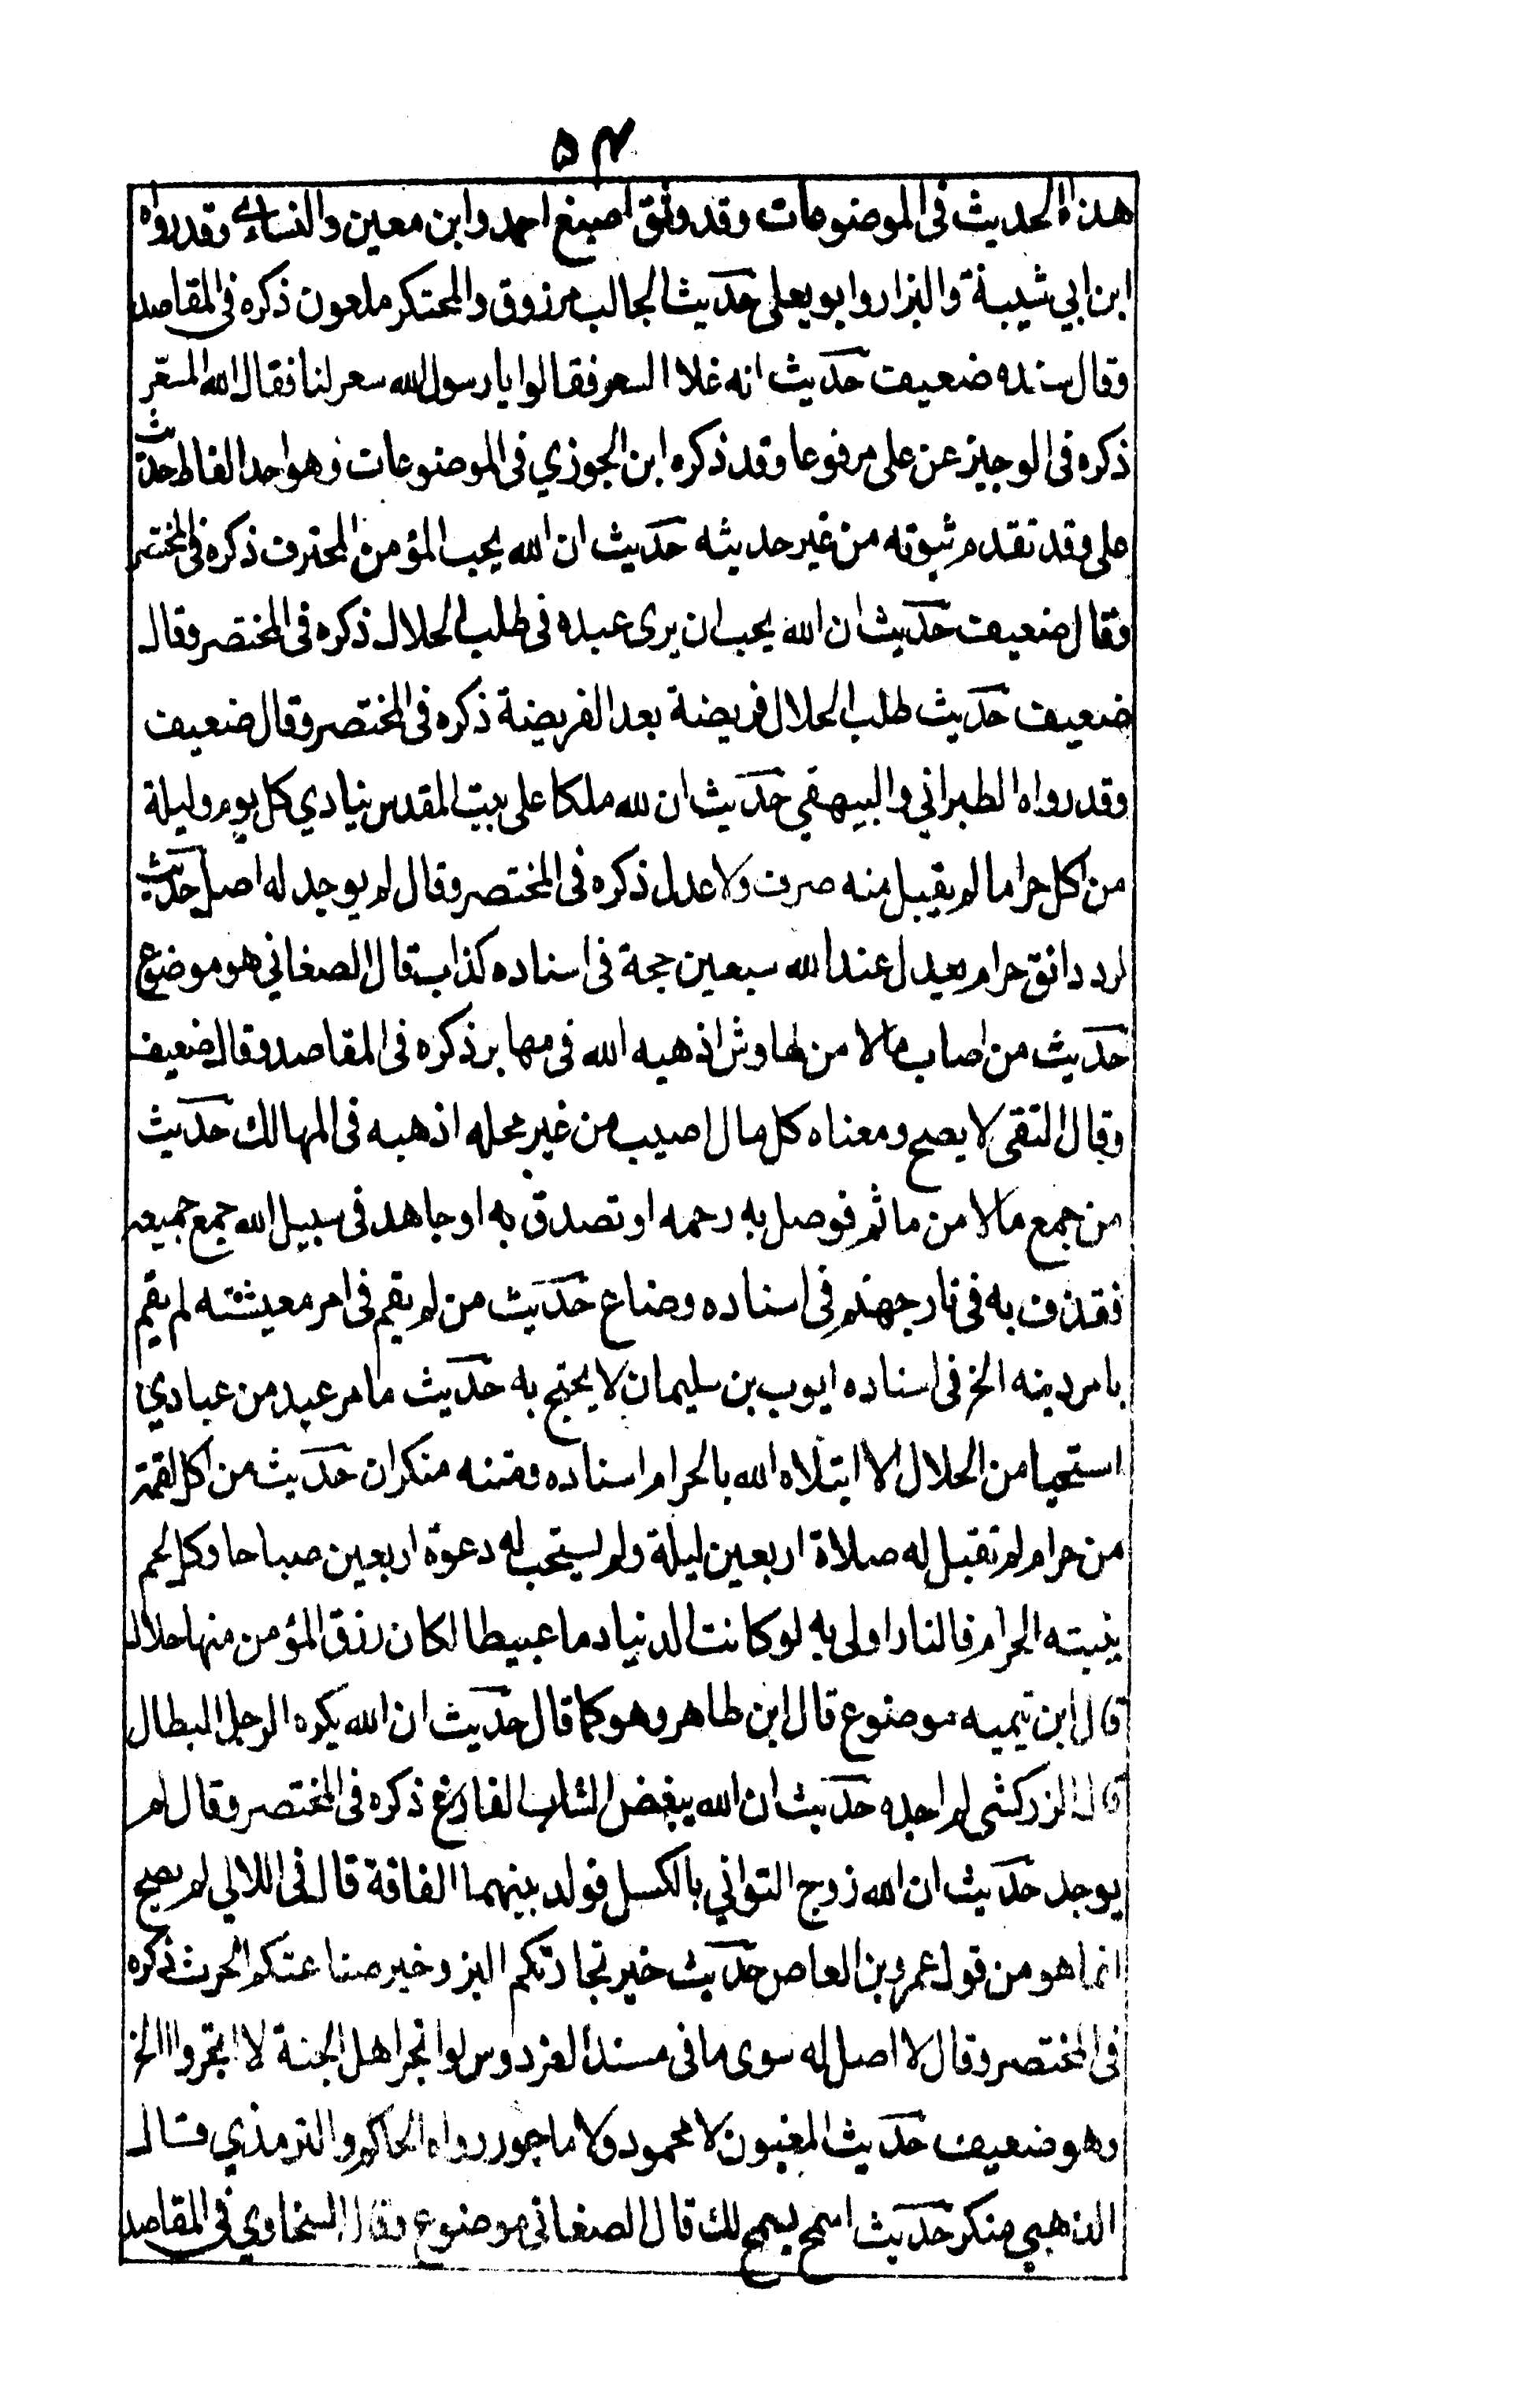 ۵۴
هذا الحديث فى الموضوعات وقد وثق اصبغ احمد وابن معين والنساءى وقد رواه
ابن ابي شيبة والبزار وابو يعلى حديث الجالب مرزوق والمحتكر ملعون ذكره فى المقاصد
وقال سنده ضعيف حديث انه غلا السعر فقالوا يا رسول الله سعر لنا فقال الله المسعر
ذكره فى الوجيز عن على مرفوعا وقد ذكره ابن الجوزي فى الموضوعات وهو احد الفاظ حديث
على وقد تقدم ثبوته من غير حديثه حديث ان الله يحب المؤمن المحترف ذكره فى المختصر
وقال ضعيف حديث ان الله يحب ان يرى عبده فى طلب الحلال ذكره فى المختصر وقال
ضعيف حديث طلب الحلال فريضة بعد الفريضة ذكره فى المختصر وقال ضعيف
وقد رواه الطبراني والبيهقي حديث ان لله ملكا على بيت المقدس ينادي كل يوم وليلة
من اكل حراما لم يقبل منه صرف ولا عدل ذكره فى المختصر وقال لم يوجد له اصل حديث
لرد دانق حرام يعدل عند الله سبعين حجة فى اسناده كذاب قال الصغاني هو موضوع
حديث من اصاب مالا من نهاوش اذهبه الله فى مهابر ذكره فى المقاصد وقال ضعيف
وقال التقى لا يصح ومعناه كل مال اصيب من غير محله اذهبه فى المهالك حديث
من جمع مالا من ماثم فوصل به رحمه او تصدق به او جاهد فى سبيل الله جمع جميعه
فقذف به فى نار جهنم فى اسناده وضاع حديث من لم يقم فى امر معيشته لم يقم
بامر دينه الخ فى اسناده ايوب بن سليمان لا يحتج به حديث ما مر عبد من عبادي
استحيا من الحلال الا ابتلاه الله بالحرام اسناده ومتنه منكران حديث من اكل لقمة
من حرام لم تقبل له صلاة اربعين ليلة ولم يستجب له دعوة اربعين صباحا وكل لحم
ينبته الحرام فالنار اولى به لو كانت الدنيا دما عبيطا لكان رزق المؤمن منها حلالا
قال ابن تيميه موضوع قال ابن طاهر وهو كما قال حديث ان الله يكره الرجل البطال
قال الزركشى لم اجده حديث ان الله يبغض الشاب الفارغ ذكره فى المختصر وقال لم
يوجد حديث ان الله زوج التواني بالكسل فولد بينهما الفاقة قال فى اللالي لم يصح
انما هو من قول عمرو بن العاص حديث خير تجارتكم البز وخير صناعتكم الحرث ذكره
فى المختصر وقال لا اصل له سوى ما فى مسند الفردوس لو اتجر اهل الجنة لا اتجروا الخ
وهو ضعيف حديث المغبون لا محمود ولا ماجور رواه الحاكم والترمذي قال
الذهبي منكر حديث اسمح يسمح لك قال الصغاني موضوع وقال السخاوي فى المقاصد